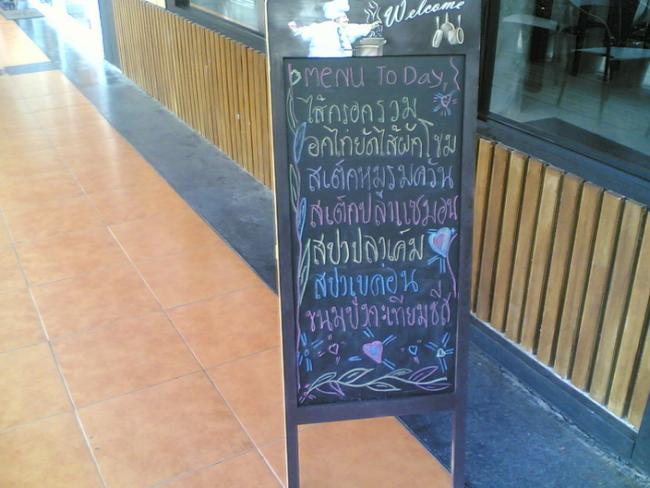 Welcome
MENU To Day,
ไส้กรอกรวม
อกไก่ยัดไส้ผักโขม
สเต็กหมูรมควัน
สเต็กปลาแซมอน
สปาปลาเค็ม
สปาเบคอน
ขนมปังกะเทียมชีส